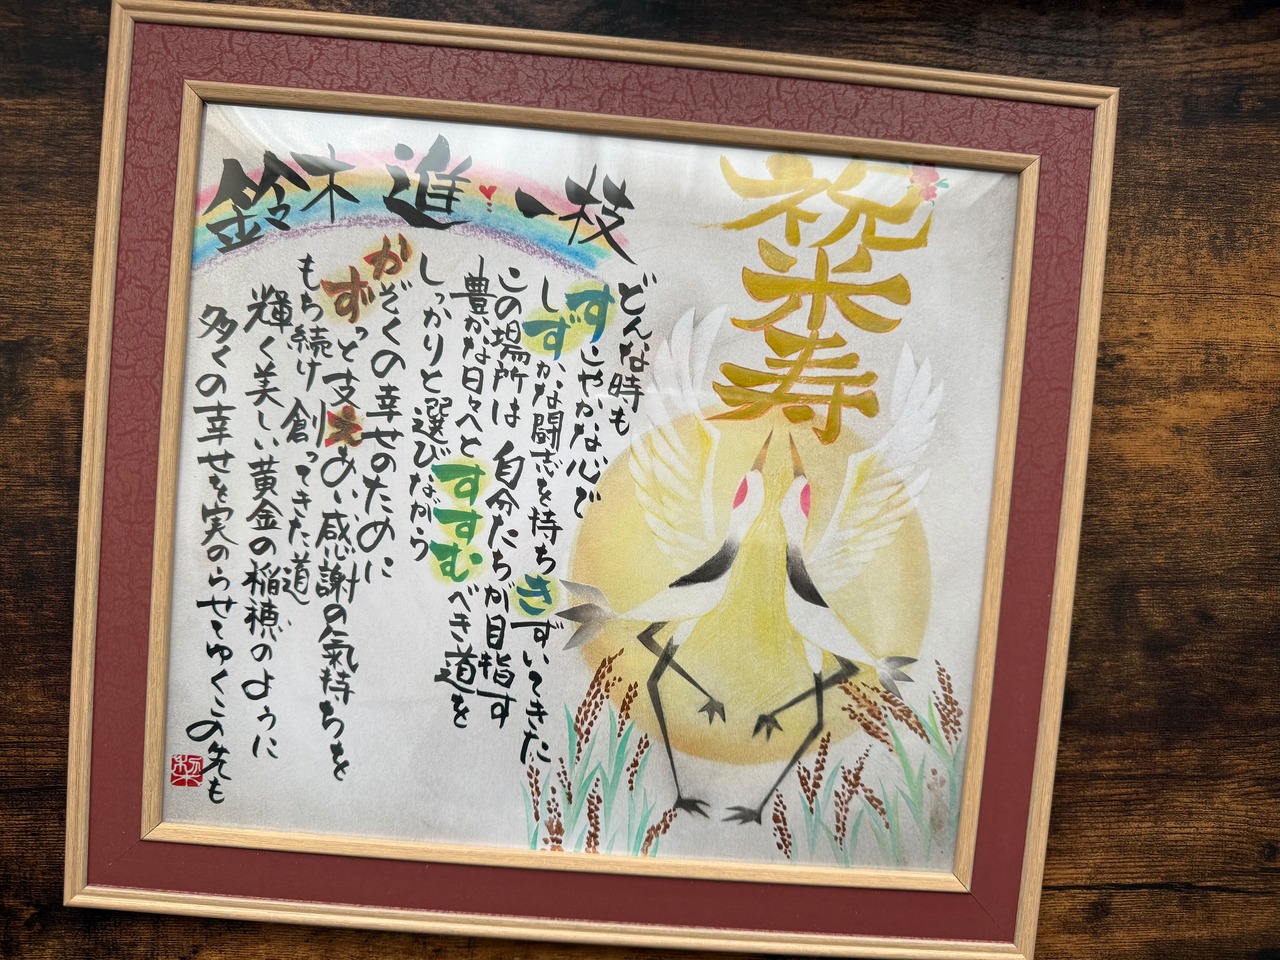 祝
米
寿
鈴木 進 一枝
どんな時も
すこやかな心で
しずかな闘志を持ち きずいてきた
この場所は 自分たちが目指す
豊かな日々へと すすむべき道を
しっかりと選びながら
かぞくの幸せのために
ずっと支えあい 感謝の氣持ちを
もち続け 創ってきた道
輝く美しい黄金の稲穂のように
多くの幸せを実のらせてゆくこの先も